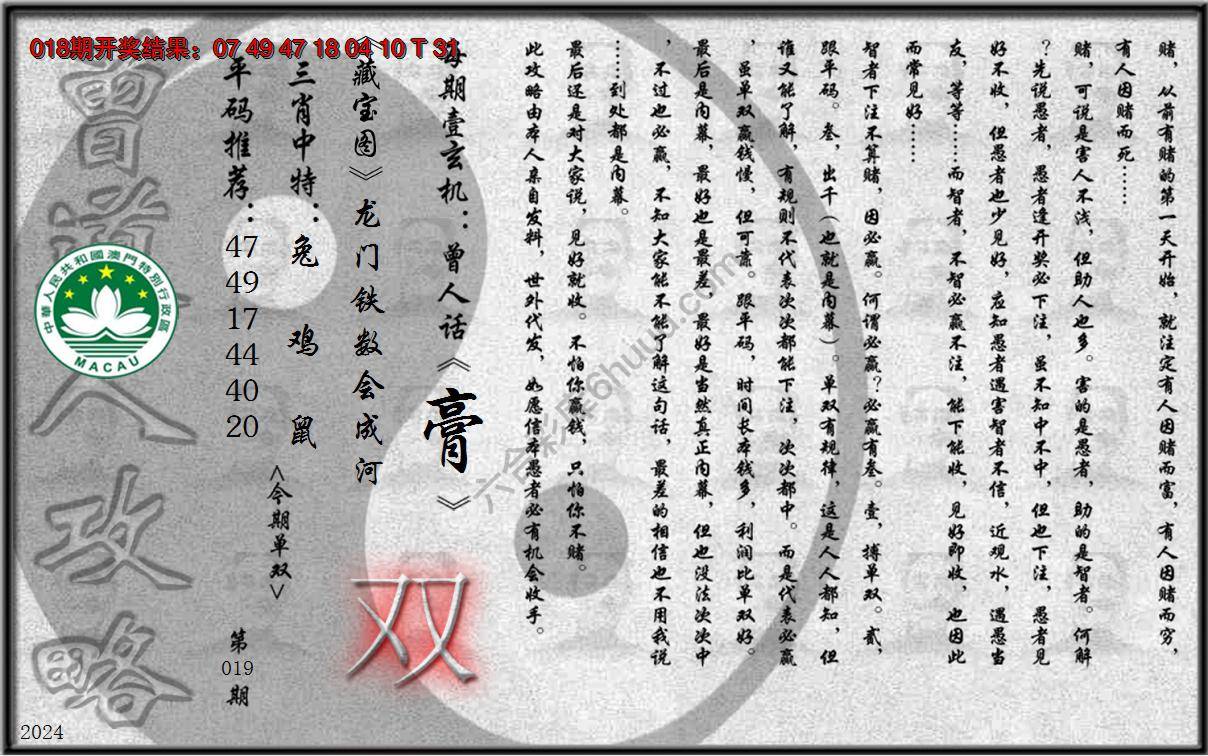 018期开奖结果：07 49 47 18 04 10 T 31
赌，从前有赌的第一天开始，就注定有人因赌而富，有人因赌而穷，
有人因赌而死……
赌，可说是害人不浅，但助人也多。害的是愚者，助的是智者。何解
？先说愚者，愚者逢开奖必下注，虽不知中不中，但也下注，愚者见
好不收，但愚者也少见好，应知愚者遇害智者不信，近观水，遇愚当
友，等等……而智者，不智必赢不注，能下能收，见好即收，也因此
而常见好……
智者下注不算赌，因必赢。何谓必赢？必赢有叁。壹，搏单双。贰，
跟平码。叁，出千（也就是内幕）。单双有规律，这是人人都知，但
谁又能了解，有规则不代表次次都能下注，次次都中。而是代表必赢
，虽单双赢钱慢，但可靠。跟平码，时间长本钱多，利润比单双好。
最后是内幕，最好也是最差，最好是当然真正内幕，但也没法次次中
，不过也必赢，不知大家能不能了解这句话，最差的相信也不用我说
……到处都是内幕。
最后还是对大家说，见好就收。不怕你赢钱，只怕你不赌。
此攻略由本人亲自发料，世外代发，如愿信本愚者必有机会收手。
每期壹玄机：曾人话《膏》
《藏宝图》龙门铁数会成河
双
三肖中特：兔 鸡 鼠
<今期单双>
平码推荐：
47
49
17
44
40
20
第
019
期
曾道人攻略
中華人民共和國澳門特別行政區
MACAU
2024
六合彩库6huuu.com